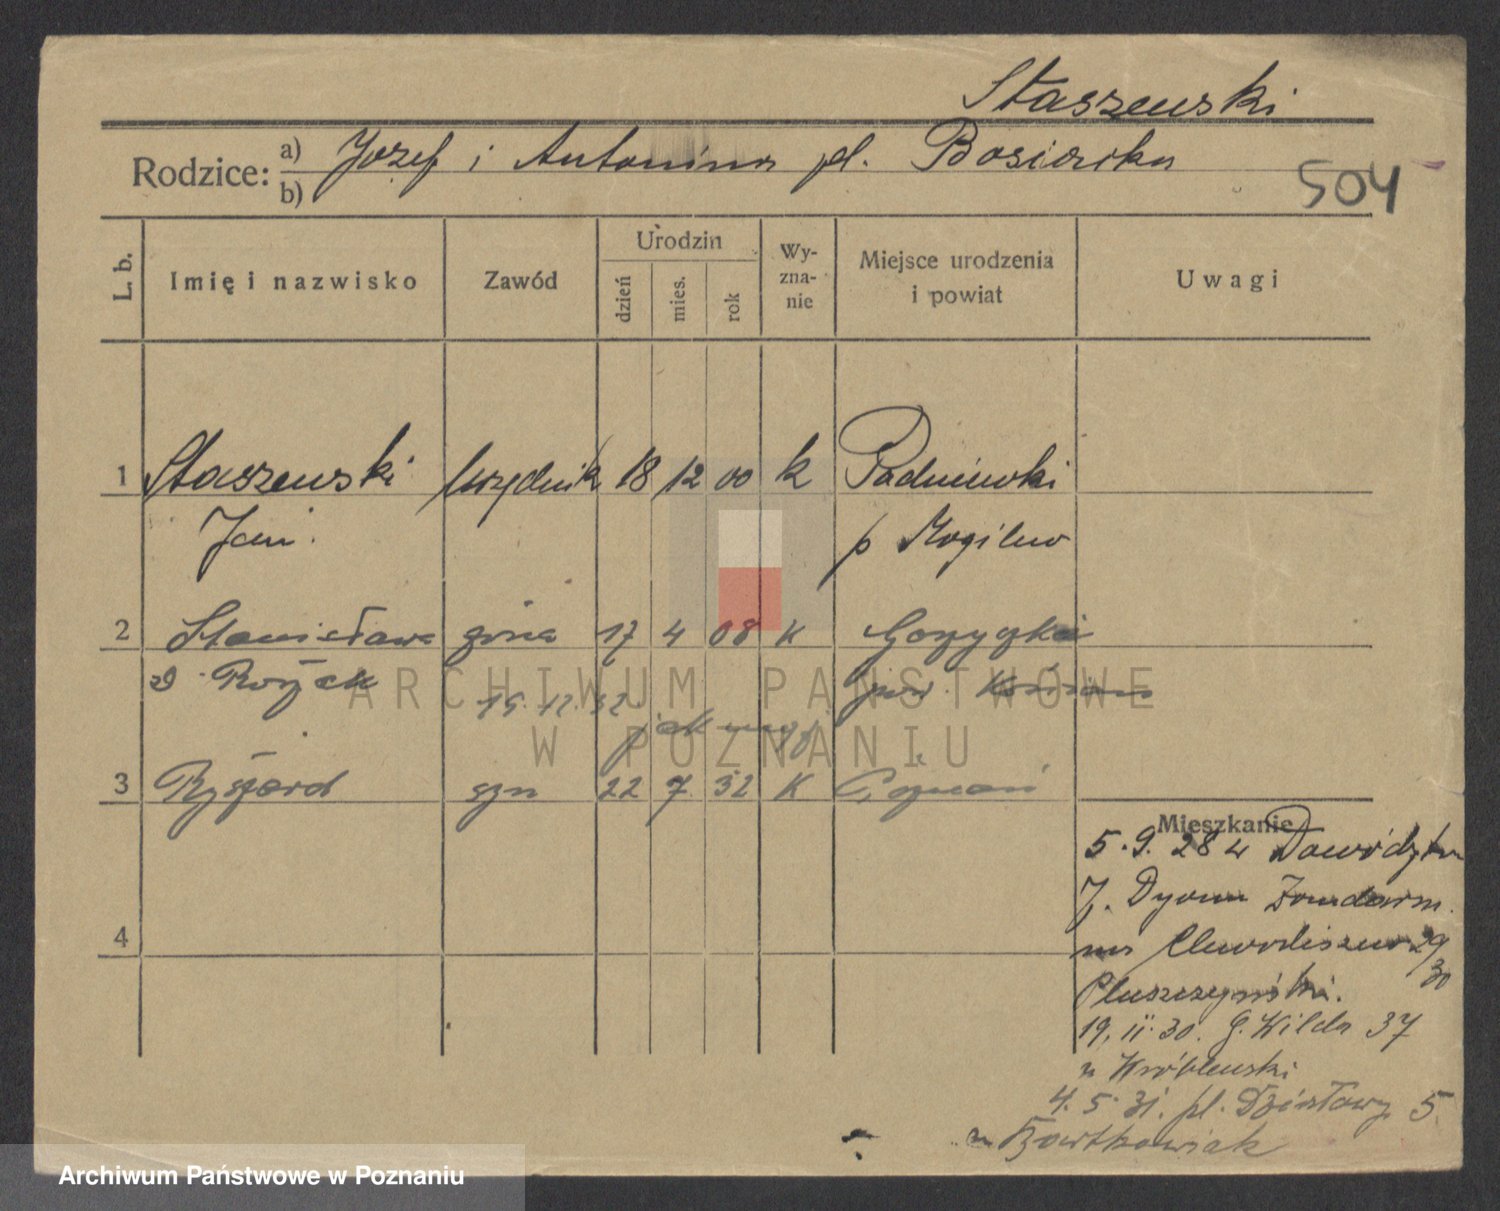 Staszewski
Rodzice: a) Józef i Antonina pl. Bosiacka
b)
504
L. b. Imię i nazwisko Zawód Urodzin dzień mies. rok Wyznanie Miejsce urodzenia i powiat Uwagi
1 Staszewski urzędnik 18 12 00 k Padniewki
Jan. p Mogilno
2 Stanisława żona 17 4 08 K
d. Rożek pow.
15.12.32 jak wyżej
3 Ryszard syn 22 7 32 K Poznań
Mieszkanie
5.9.28 w Dowództw
7. Dyonu Żandarm.
na 29/30
Pluszczyński.
19.II.30. G. Wilda 37
u Wróblewski
4.5.31. pl. Działowy 5.
u Bartkowiak
4
ARCHIWUM PAŃSTWOWE
W POZNANIU
Archiwum Państwowe w Poznaniu